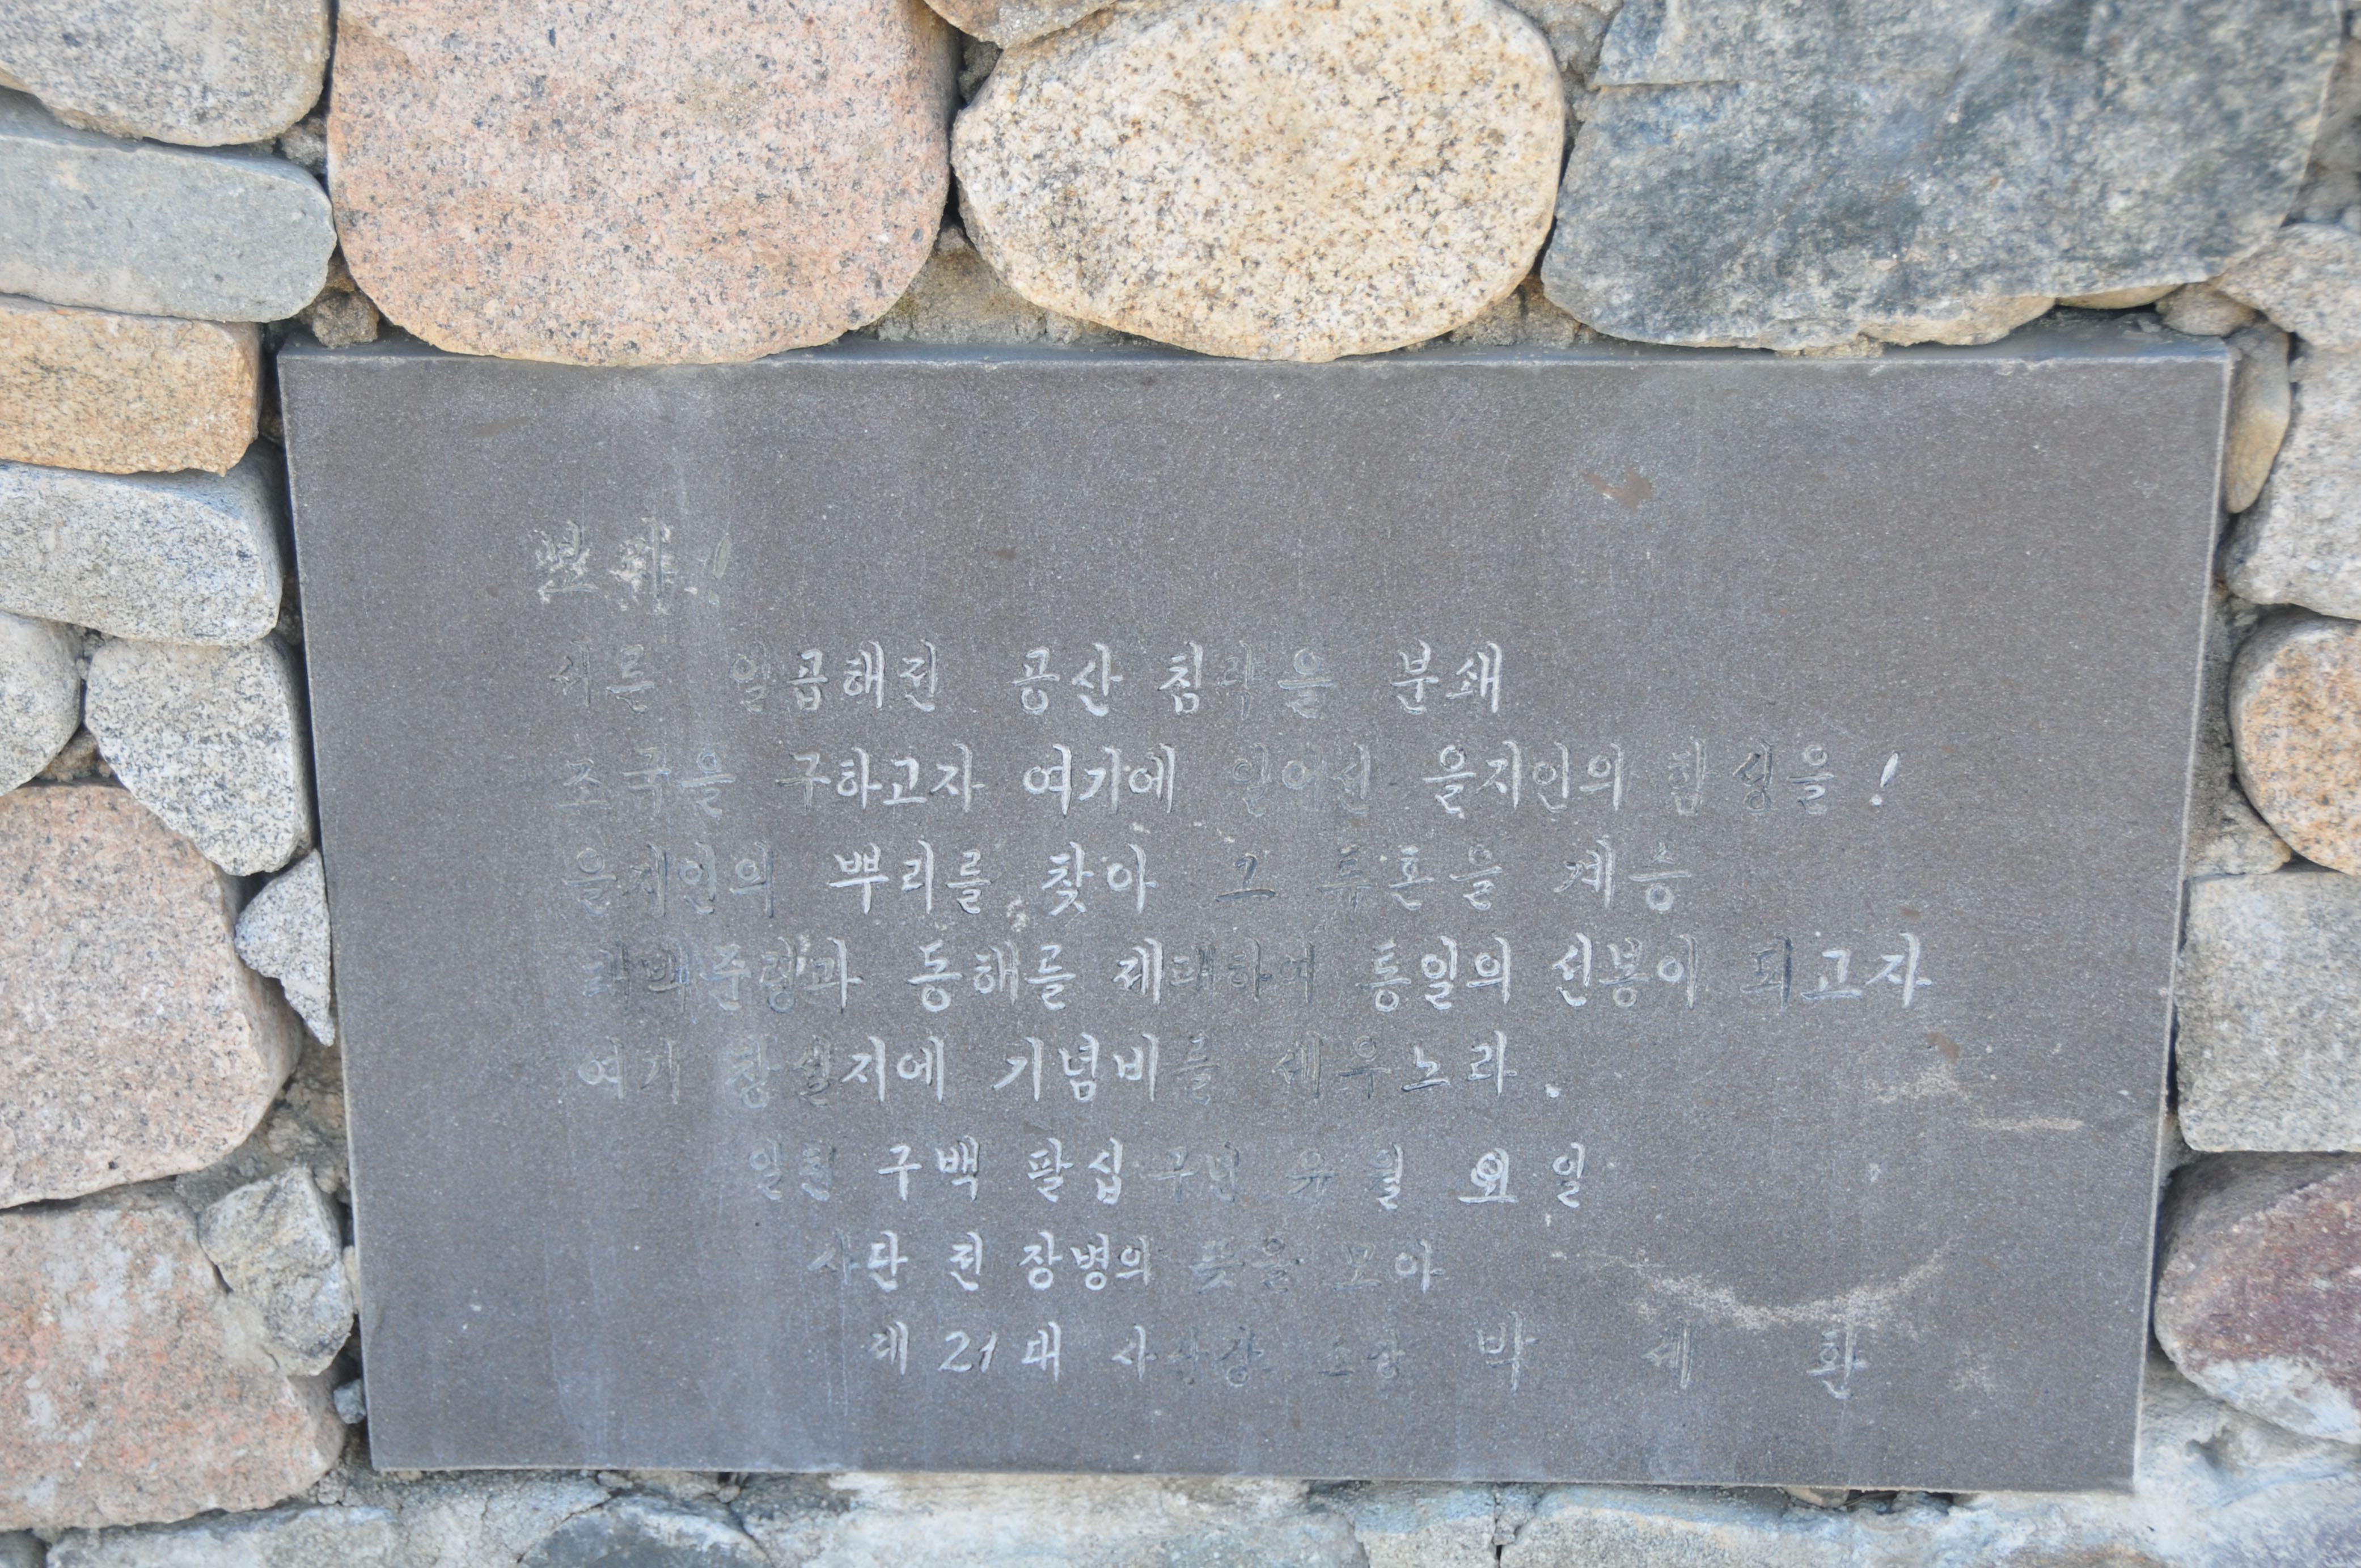 보라!
서른 일곱해전 공산 침략을 분쇄
조국을 구하고자 여기에 일어선 을지인의 함성을!
을지인의 뿌리를 찾아 그 투혼을 계승
태백준령과 동해를 제패하여 통일의 선봉이 되고자
여기 창설지에 기념비를 세우노라.
일천 구백 팔십 구년 유월 일
사단 전 장병의 뜻을 모아
제 21대 사단장 소장 박 세 환